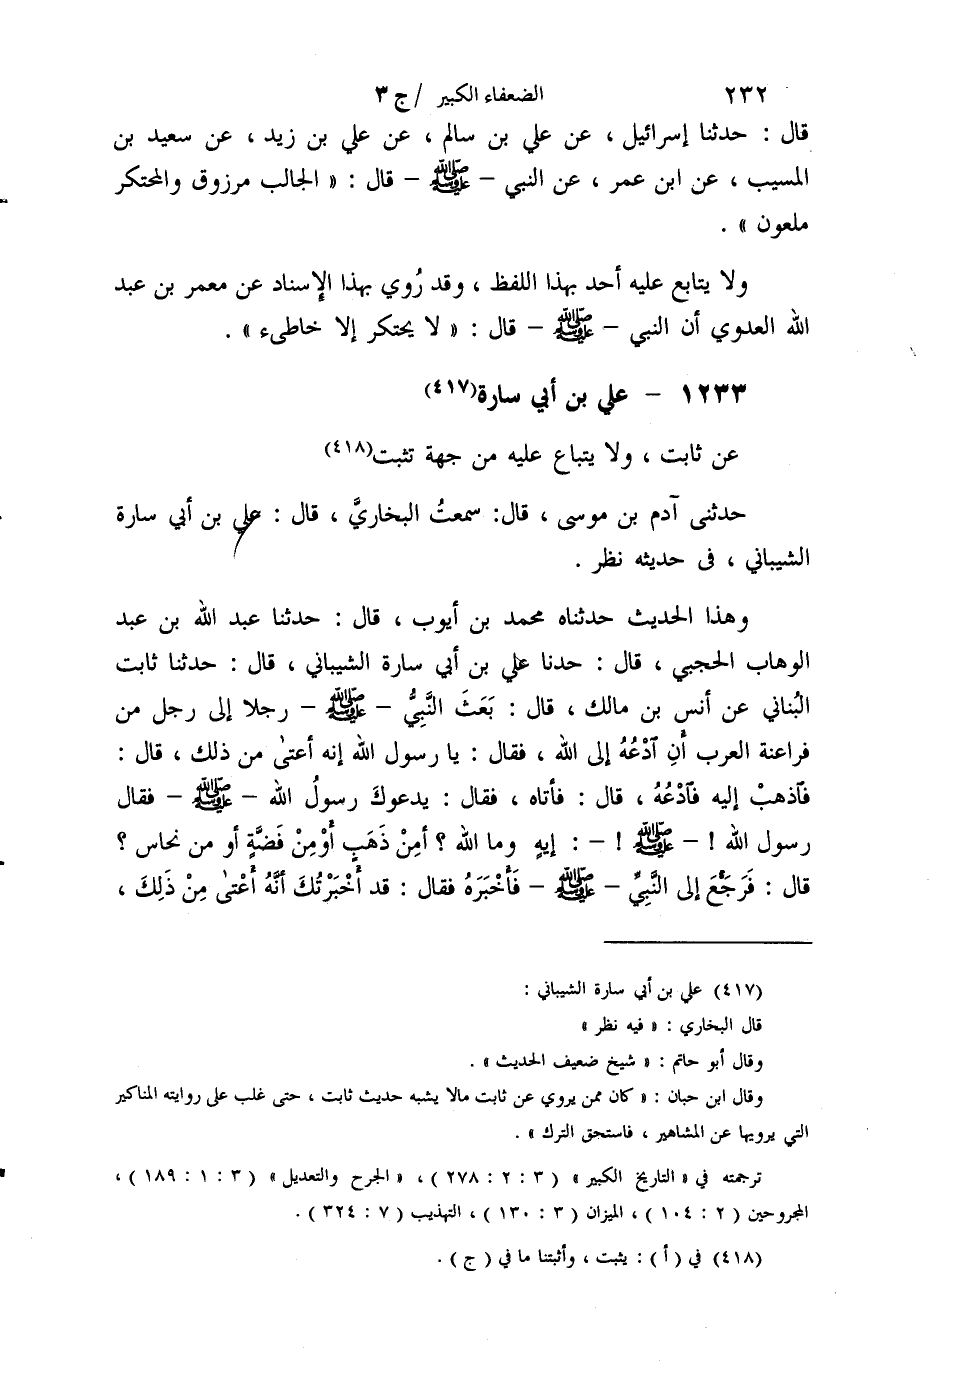 ٢٣٢ الضعفاء الكبير / ج ٣
قال : حدثنا إسرائيل ، عن علي بن سالم ، عن علي بن زيد ، عن سعيد بن
المسيب ، عن ابن عمر ، عن النبي – ﷺ – قال : « الجالب مرزوق والمحتكر
ملعون » .
ولا يتابع عليه أحد بهذا اللفظ ، وقد رُوي بهذا الإسناد عن معمر بن عبد
الله العدوي أن النبي – ﷺ – قال : « لا يحتكر إلا خاطىء » .
١٢٣٣ – علي بن أبي سارة(٤١٧)
عن ثابت ، ولا يتباع عليه من جهة تثبت(٤١٨)
حدثنى آدم بن موسى ، قال: سمعتُ البخاريَّ ، قال : علي بن أبي سارة
الشيباني ، فى حديثه نظر .
وهذا الحديث حدثناه محمد بن أيوب ، قال : حدثنا عبد الله بن عبد
الوهاب الحجبي ، قال : حدنا علي بن أبي سارة الشيباني ، قال : حدثنا ثابت
البُناني عن أنس بن مالك ، قال : بَعَثَ النَّبِيُّ – ﷺ – رجلا إلى رجل من
فراعنة العرب أَنِ ٱدْعُهُ إلى الله ، فقال : يا رسول الله إنه أعتىٰ من ذلك ، قال :
فٱذهبْ إليه فٱدْعُهُ ، قال : فأتاه ، فقال : يدعوكَ رسولُ الله – ﷺ – فقال
رسول الله ! – ﷺ ! – : إيهٍ وما الله ؟ أمِنْ ذَهَبٍ أَوْمِنْ فَضَّةٍ أو من نحاس ؟
قال : فَرَجَعَ إلى النَّبِيِّ – ﷺ – فَأَخْبَرَهُ فقال : قد أَخْبَرْتُكَ أنَّهُ أَعْتىٰ مِنْ ذَلِكَ ،
(٤١٧) علي بن أبي سارة الشيباني :
قال البخاري : « فيه نظر »
وقال أبو حاتم : « شيخ ضعيف الحديث » .
وقال ابن حبان : « كان ممن يروي عن ثابت مالا يشبه حديث ثابت ، حتى غلب على روايته المناكير
التي يرويها عن المشاهير ، فاستحق الترك » .
ترجمته في « التاريخ الكبير » ( ٣ : ٢ : ٢٧٨ ) ، « الجرح والتعديل » ( ٣ : ١ : ١٨٩ ) ،
المجروحين ( ٢ : ١٠٤ ) ، الميزان ( ٣ : ١٣٠ ) ، التهذيب ( ٧ : ٣٢٤ ) .
(٤١٨) في ( أ ) : يثبت ، وأثبتنا ما في ( ج ) .